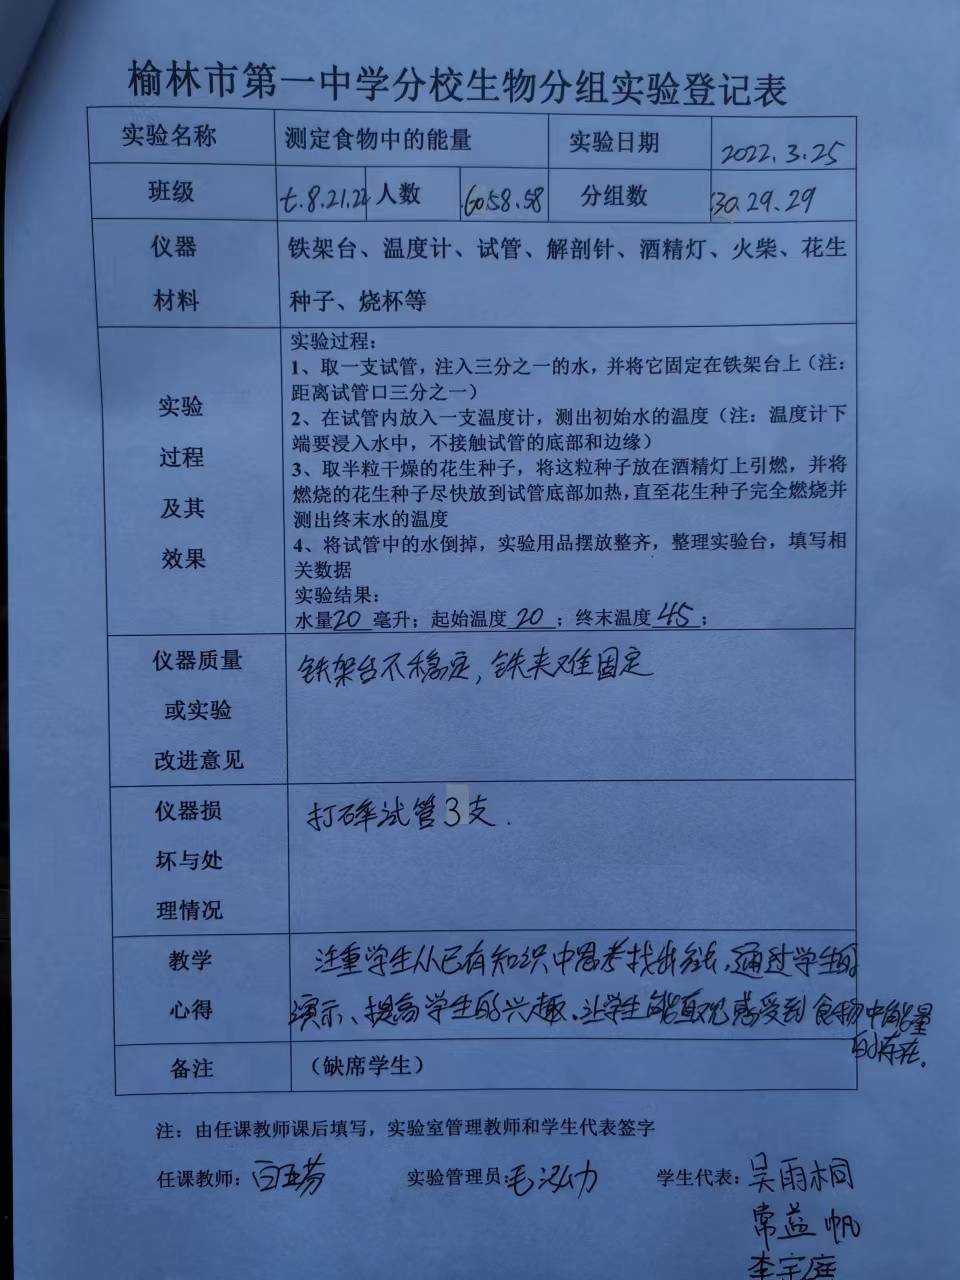 榆林市第一中学分校生物分组实验登记表
实验名称 测定食物中的能量 实验日期 2022.3.25
班级 t.8.21.22 人数 60.58.58 分组数 30.29.29
仪器 铁架台、温度计、试管、解剖针、酒精灯、火柴、花生
材料 种子、烧杯等
实验过程：
1、取一支试管，注入三分之一的水，并将它固定在铁架台上（注：
距离试管口三分之一）
实验
2、在试管内放入一支温度计，测出初始水的温度（注：温度计下
端要浸入水中，不接触试管的底部和边缘）
过程
3、取半粒干燥的花生种子，将这粒种子放在酒精灯上引燃，并将
燃烧的花生种子尽快放到试管底部加热，直至花生种子完全燃烧并
及其
测出终末水的温度
4、将试管中的水倒掉，实验用品摆放整齐，整理实验台，填写相
效果
关数据
实验结果：
水量20毫升；起始温度20；终末温度45；
仪器质量 铁架台不稳定，铁夹难固定
或实验
改进意见
仪器损 打碎试管3支.
坏与处
理情况
教学 注重学生从已有知识中思考找出，通过学生的
心得 演示、提高学生的兴趣、让学生能直观感受到食物中能量
的存在.
备注 （缺席学生）
注：由任课教师课后填写，实验室管理教师和学生代表签字
任课教师： 实验管理员：毛泓力 学生代表：吴雨桐
常益帆
李宇庭